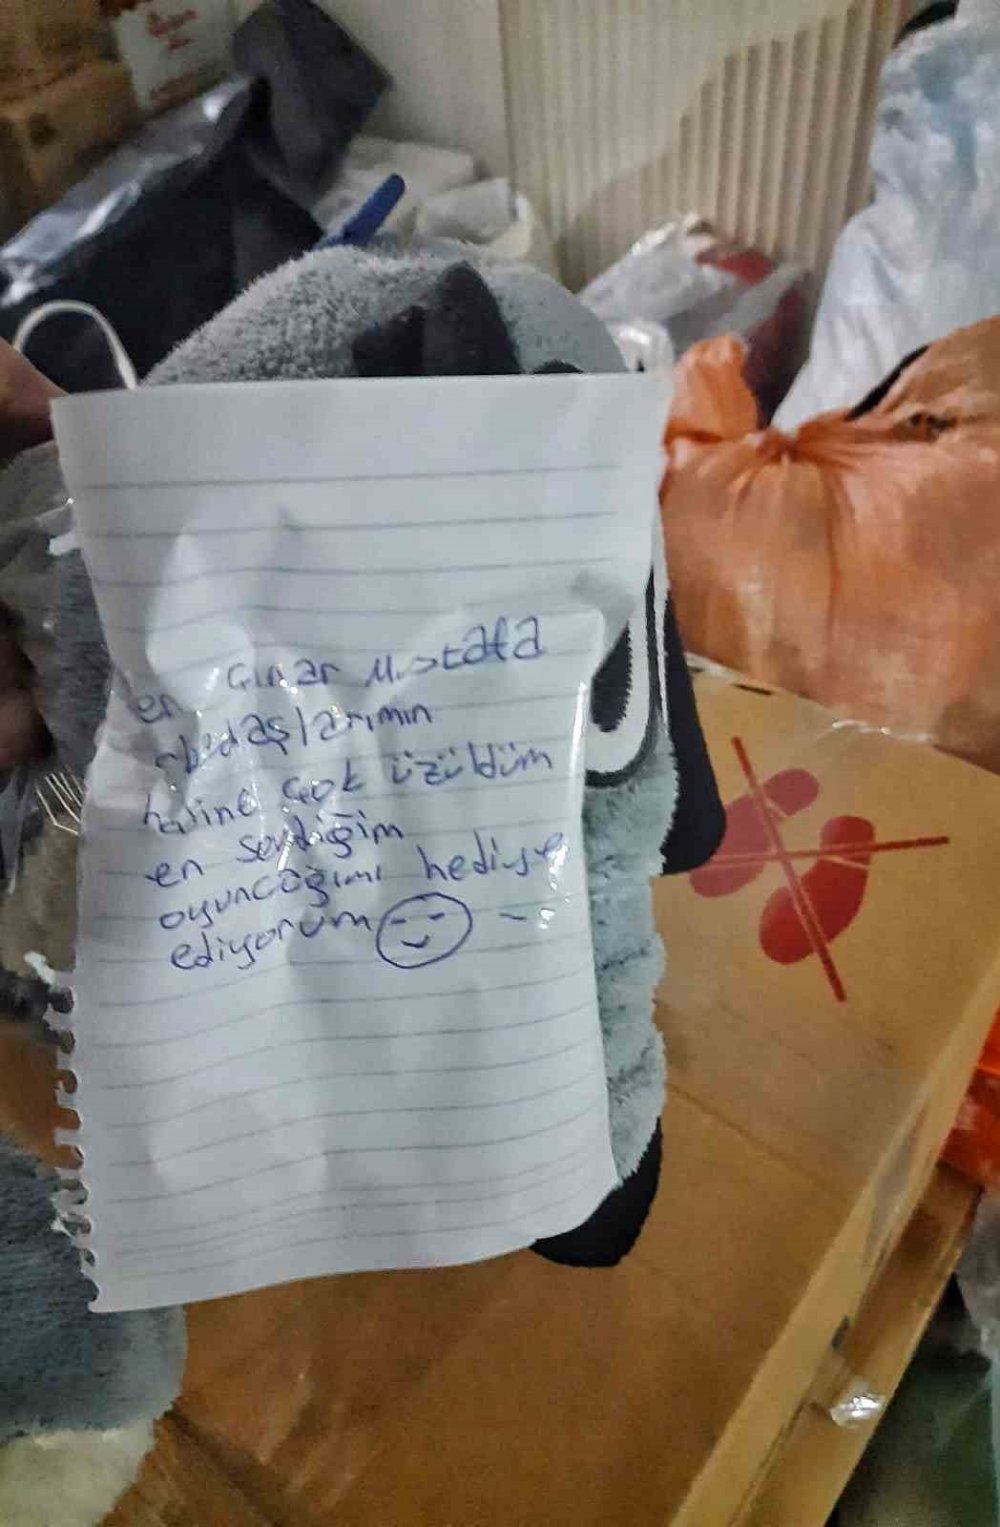 en Çınar Mustafa
rkadaşlarımın
haline çok üzüldüm
en sevdiğim
oyuncağımı hediye
ediyorum